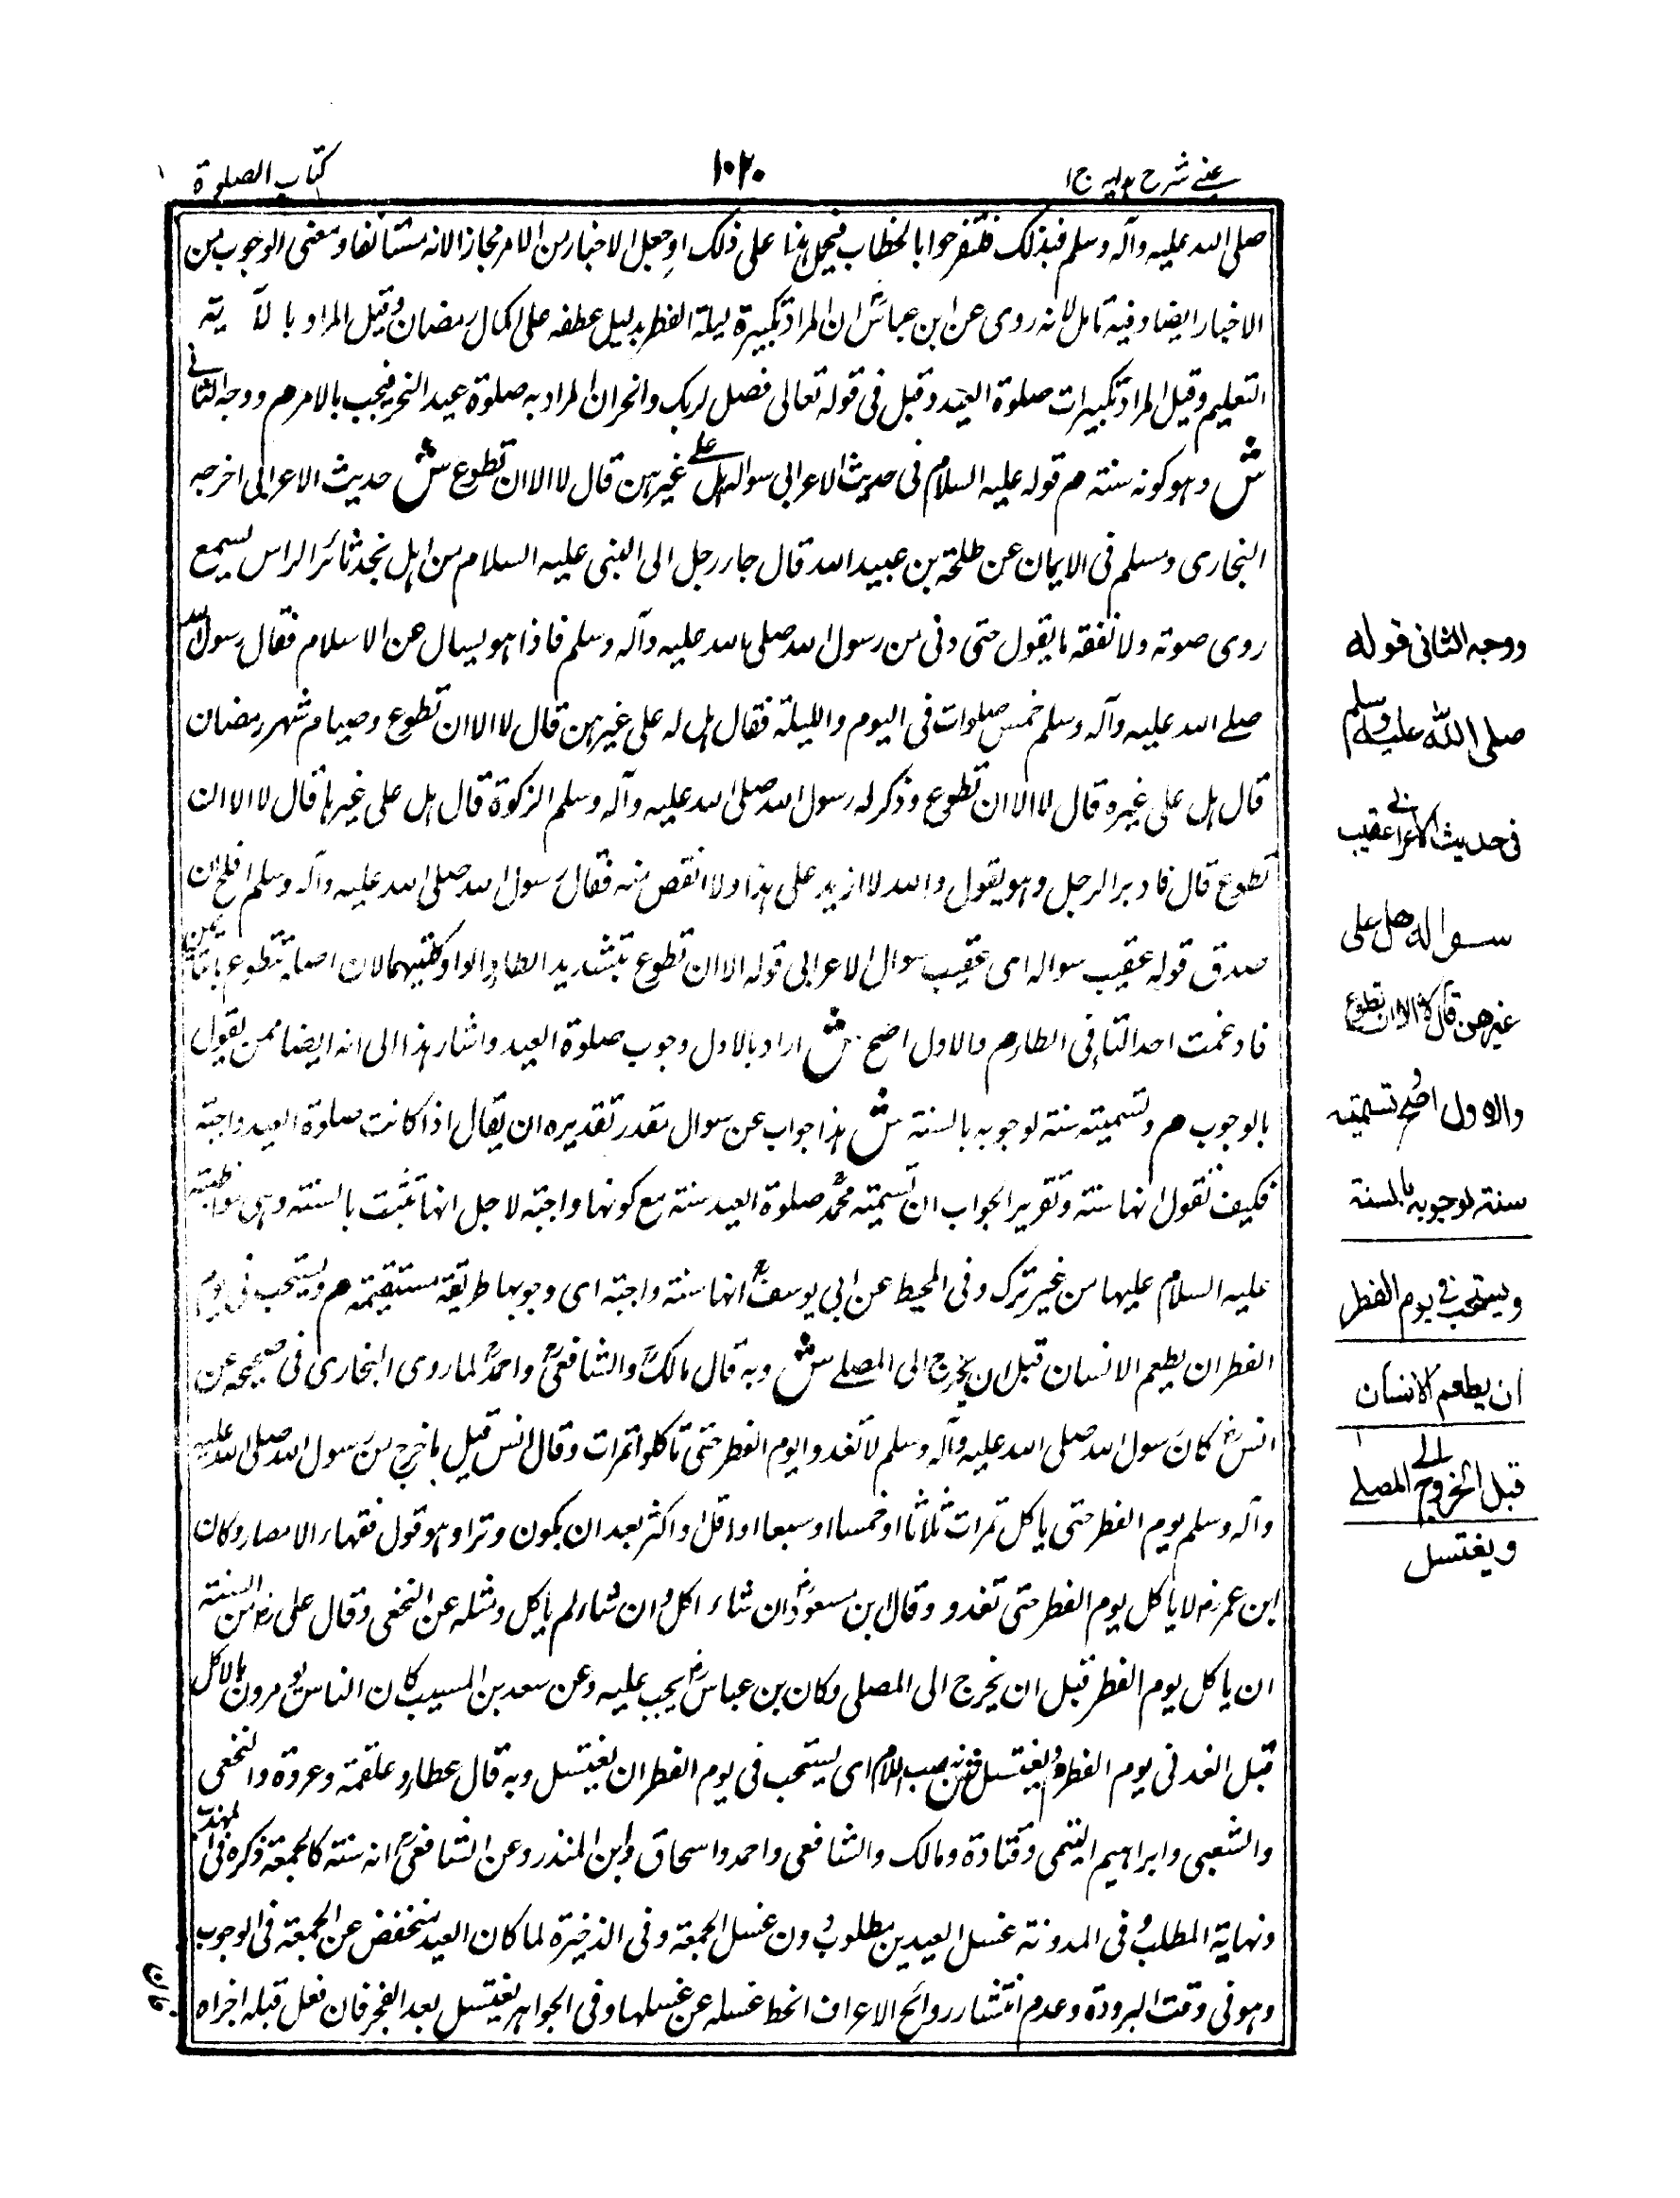 عینے شرح ہدایہ ج۱
۱۰۲۰
کتاب الصلوة
صلی الله علیه وآله وسلم فبذلک فلتفرحوا بالخطاب فیحمل ہذا علی ذلک او جعل الاخبار من الامر مجازا لانه مستأنفا ومعنی الوجوب من
الاخبار ایضا وفیه تامل لانه روی عن ابن عباسؓ ان المراد تکبیرة لیلة الفطر بدلیل عطفه علی اکمال رمضان وقیل المراد بالآیة
التعلیم وقیل المراد تکبیرات صلوة العید وقیل فی قوله تعالی فصل لربک وانحر ان المراد به صلوة عید النحر فیجب بالامر م ووجه الثانے
ش وہو کونه سنة م قوله علیه السلام فی حدیث الاعرابی سواله ہل علے غیرہن قال لا الا ان تطوع ش حدیث الاعرابی اخرجه
البخاری ومسلم فی الایمان عن طلحة بن عبید الله قال جاء رجل الی النبی علیه السلام من اہل نجد ثائر الراس یسمع
روی صوته ولا نفقه ما یقول حتی دنی من رسول الله صلی الله علیه وآله وسلم فاذا ہو یسال عن الاسلام فقال رسول الله
صلے الله علیه وآله وسلم خمس صلوات فی الیوم واللیلة فقال ہل له علی غیرہن قال لا الا ان تطوع وصیام شہر رمضان
قال ہل علی غیره قال لا الا ان تطوع وذکر له رسول الله صلی الله علیه وآله وسلم الزکوة قال ہل علی غیرہا قال لا الا ان
تطوع قال فادبر الرجل وہو یقول والله لا ازید علی ہذا ولا انقص منه فقال رسول الله صلی الله علیه وآله وسلم افلح ان
صدق قوله عقیب سواله ای عقیب سوال الاعرابی قوله الا ان تطوع بتشدید الطاء والواو کلتیہما لان اصله تتطوع بتائین
فادغمت احد التاء فی الطاء م والاول اصح ش اراد بالاول وجوب صلوة العید واشار بہذا الی انه ایضا ممن یقول
بالوجوب م وتسمیته سنة لوجوبه بالسنة ش ہذا جواب عن سوال مقدر تقدیره ان یقال اذا کانت صلوة العید واجبة
فکیف تقول انہا سنة وتقریر الجواب ان تسمیة محمدؒ صلوة العید سنة مع کونہا واجبة لاجل انہا تثبت بالسنة وہی مواظبته
علیه السلام علیہا من غیر ترک وفی المحیط عن ابی یوسفؒ انہا سنة واجبة ای وجوبہا طریقة مستقیمة م ویستحب فی یوم
الفطر ان یطعم الانسان قبل ان یخرج الی المصلے ش وبه قال مالکؒ والشافعیؒ واحمدؒ لما روی البخاری فی صحیحه عن
انسؓ کان رسول الله صلی الله علیه وآله وسلم لا تغدوا یوم الفطر حتی تاکلوا تمرات وقال انس قیل ما خرج من رسول الله صلی الله علیه
وآله وسلم یوم الفطر حتی یاکل تمرات ثلاثا او خمسا او سبعا او اقل او اکثر بعد ان یکون وترا وہو قول فقہاء الامصار وکان
ابن عمرؓ لا یاکل یوم الفطر حتی تغدو وقال ابن مسعودؓ ان شاء اکل وان شاء لم یاکل ومثله عن النخعی وقال علیؓ من السنة
ان یاکل یوم الفطر قبل ان یخرج الی المصلی وکان بن عباسؓ یجب علیه وعن سعد بن المسیب کان الناس یومرون بالاکل
قبل الغد فی یوم الفطر م ویغتسل ش بنصب اللام ای یستحب فی یوم الفطر ان یغتسل وبه قال عطاء وعلقمة وعروة والنخعی
والشعبی وابراہیم التیمی وقتادة ومالک والشافعی واحمد واسحاق وابن المنذر وعن الشافعیؒ انه سنة کالجمعة ذکره فی المہذب
ونہایة المطلب وفی المدونة غسل العیدین مطلوب دون غسل الجمعة وفی الذخیرة لما کان العید منخفض عن الجمعة فی الوجوب
وہو فی وقت البرودة وعدم انتشار روائح الاعراف انحط غسله عن غسلہا وفی الجواہر یغتسل بعد الفجر فان فعل قبله اجزاه
فان
ووجه الثانی قوله
صلی الله علیه وسلم
فی حدیث الاعرابے عقیب
سواله هل علی
غیرهن قال لا الا ان تطوع
والاول اصح وتسمیته
سنة لوجوبه بالسنة
ویستحب فی یوم الفطر
ان یطعم الانسان
قبل الخروج الی المصلے
ویغتسل